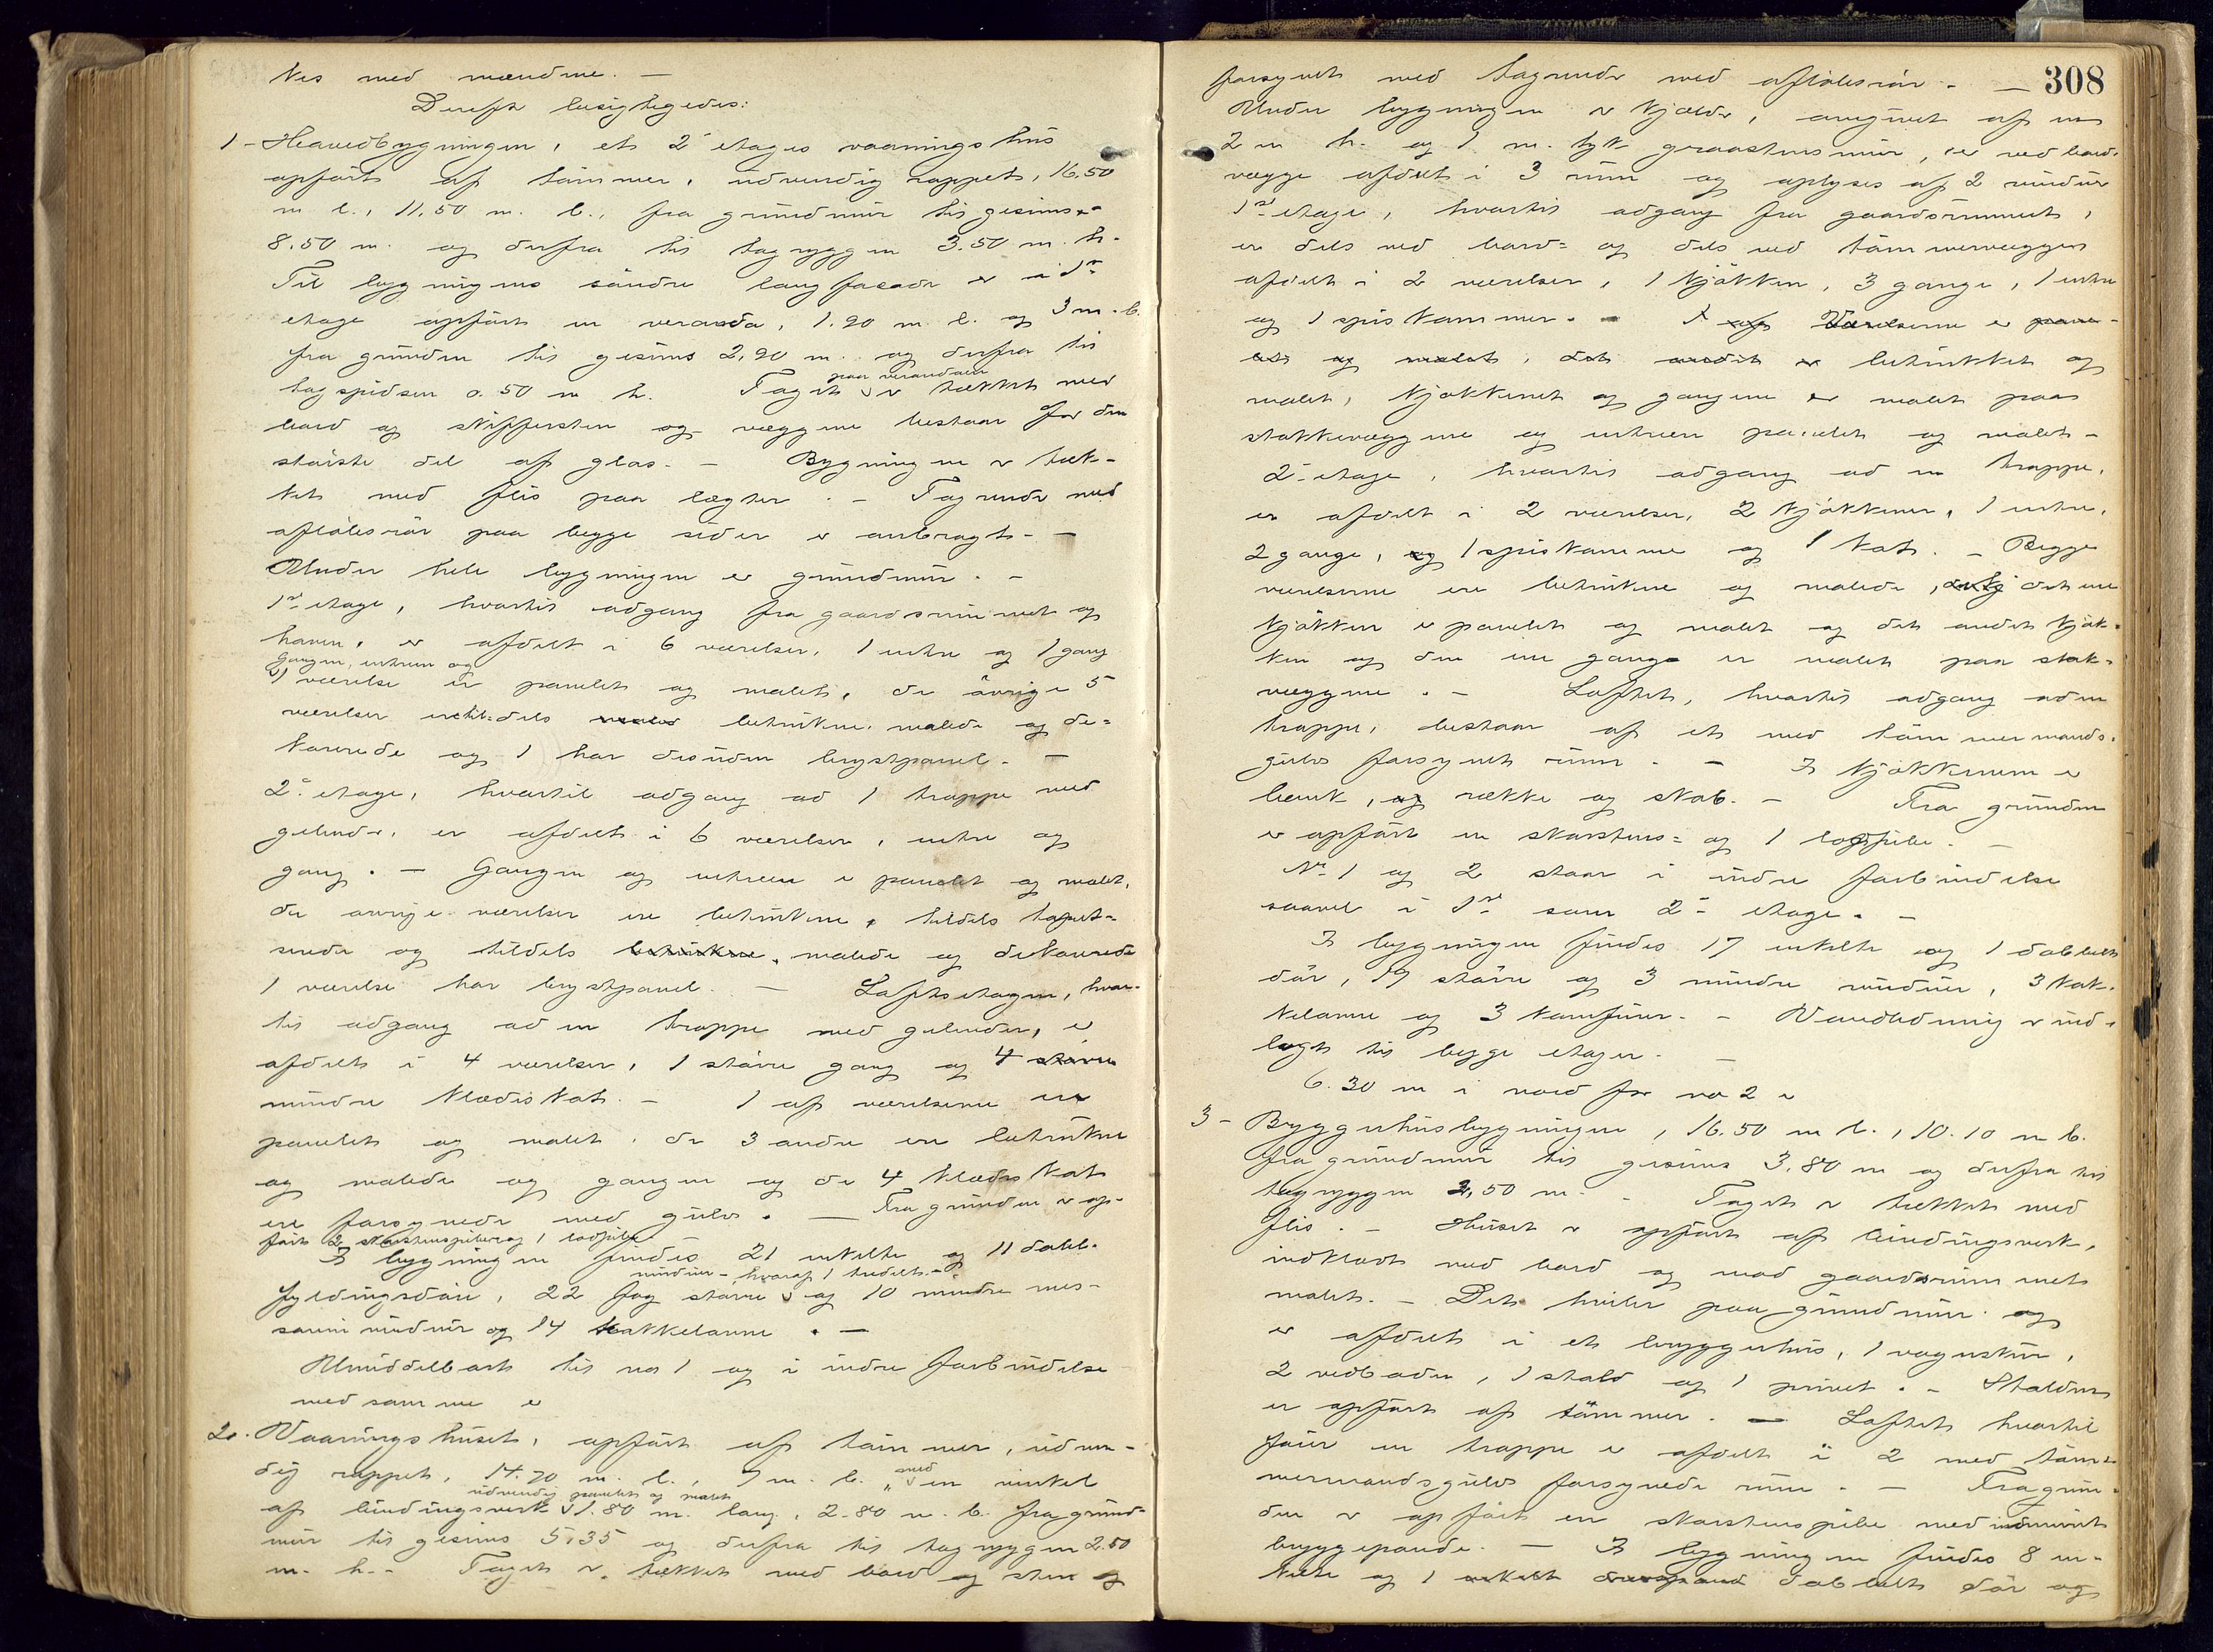 kes med mændene. —
Derefter besigtigedes:
1 - Hovedbygningen, et 2 etages vaaningshus
opført af tømmer, udvendig rappet, 16,50
m l., 11,50 m. b., fra grundmur til gesims
8.50 m. og derfra til tagryggen 3.50 m. h.
Til bygningens søndre langfacade er i 1ste
etage opført en veranda, 1.90 m l. og 3 m. b.
fra grunden til gesims 2,90 m. og derfra til
tagspidsen 0.50 m h. Taget paa verandaen er tækket med
bord og skiffersten og væggene bestaar for den
største del af glas. — Bygningen er tæk-
ket med flis paa lægter. — Tagrende med
afløbsrør paa begge sider er anbragt. —
Under hele bygningen er grundmur. —
1ste etage, hvortil adgang fra gaardsrummet og
haven, er afdelt i 6 værelser, 1 entre og 1 gang
Gangen, entreen og
1 værelse er panelet og malet, de øvrige 5
værelser er tildels betrukne, malede og de-
korerede og 1 har desuden brystpanel. —
2. etage, hvortil adgang ad 1 trappe med
gelender, er afdelt i 6 værelser, entre og
gang. — Gangen og entreen er panelet og malet,
de øvrige værelser ere betrukne, tildels tapet-
serede og tildels betrukne, malede og dekorerede
1 værelse har brystpanel. — Loftsetagen, hvor-
til adgang ad en trappe med gelender, er
afdelt i 4 værelser, 1 større gang og 4 større
mindre klædeskot. — 1 af værelserne er
panelet og malet, de 3 andre ere betrukne
og malede og gangen og de 4 klædeskot
ere forsynede med gulv. — Fra grunden er op-
ført 2 skorstenspiber og 1 lodpibe.
I bygningen findes 21 enkelte og 11 dobb.
fyldingsdøre, 22 fag større vinduer - hvoraf 1 tredelt - og 10 mindre mes-
sanin vinduer og 14 kakkelovne. —
Umiddelbart til no 1 og i indre forbindelse
med samme er
2. Vaaningshuset, opført af tømmer, udven-
dig rappet, 14.70 m. l., 7 m. b. med en vinkel
af bindingsverk udvendig panelet og malet 1.80 m. lang, 2.80 m. b. fra grund-
mur til gesims 5,35 og derfra til tagryggen 2.50
m. h. - Taget er tækket med bord og sten og
308
forsynet med tagrende med afløbsrør. —
Under bygningen er kjelder, omgivet af en
2 m h. og 1 m. tyk graastensmur, er ved bord-
vægge afdelt i 3 rum og oplyses af 2 vinduer
1ste etage, hvortil adgang fra gaardsrummet,
er dels ved bord- og dels ved tømmervægger
afdelt i 2 værelser, 1 kjøkken, 3 gange, 1 entre
og 1 spiskammer. - Værelserne er
betrukket og
malet, kjøkkenet og gangene er malet paa
stokkevæggene og entreen panelet og malet -
2. etage, hvortil adgang ad en trappe,
er afdelt i 2 værelser, 2 kjøkkener, 1 entre,
2 gange, og 1 spiskammer og 1 kot. — Begge
værelserne ere betrukne og malede, det ene
kjøkken er panelet og malet og det andet kjøk-
ken og den ene gang er malet paa stok-
væggene. — Loftet, hvortil adgang ad en
trappe, bestaar af et med tømmermands-
gulv forsynet rum. — I kjøkkenerne er
benk, og række og skab. — Fra grunden
er opført en skorstens- og 1 lodpibe. —
No 1 og 2 staar i indre forbindelse
saavel i 1ste som 2. etage. —
I bygningen findes 17 enkelte og 1 dobbelt
dør, 19 større og 3 mindre vinduer, 3 kak-
kelovne og 3 komfurer. — Vandledning er ind-
lagt til begge etager. —
6.30 m i nord for no 2 er
3 - Bryggerhusbygningen, 16.50 m l., 10.10 m b.
fra grundmur til gesims 3.80 m og derfra til
tagryggen 2,50 m. - Taget er tækket med
flis. — Huset er opført af bindingsverk,
indklædt med bord og mod gaardsrummet
malet. — Det hviler paa grundmur og
er afdelt i et bryggerhus, 1 vognskur,
2 vedboder, 1 stald og 1 privet. — Stalden
er opført af tømmer. — Loftet hvortil
fører en trappe er afdelt i 2 med tøm-
mermandsgulv forsynede rum. — Fra grun-
den er opført en skorstenspibe med indmuret
bryggepande. — I bygningen findes 8 en-
kelte og 1 enkelt dobbelt dør og